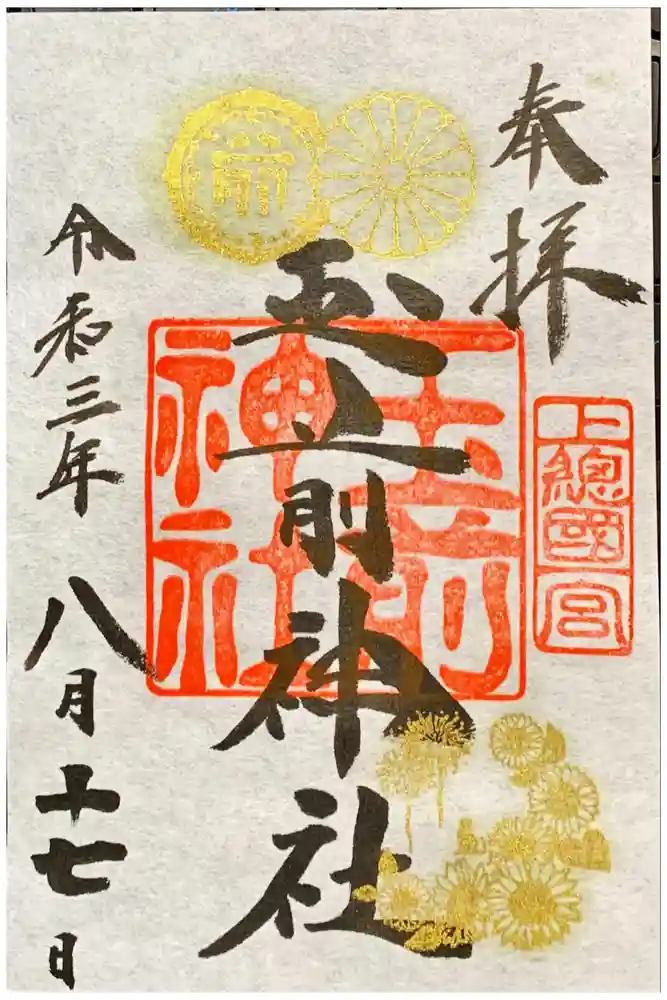 奉拝
上總國一宮
玉前神社
玉前
神社
令和三年八月十七日